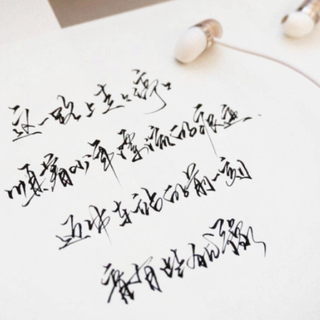 这一路上走走停停
顺着少年漂流的痕迹
迈出车站的前一刻
竟有些犹豫